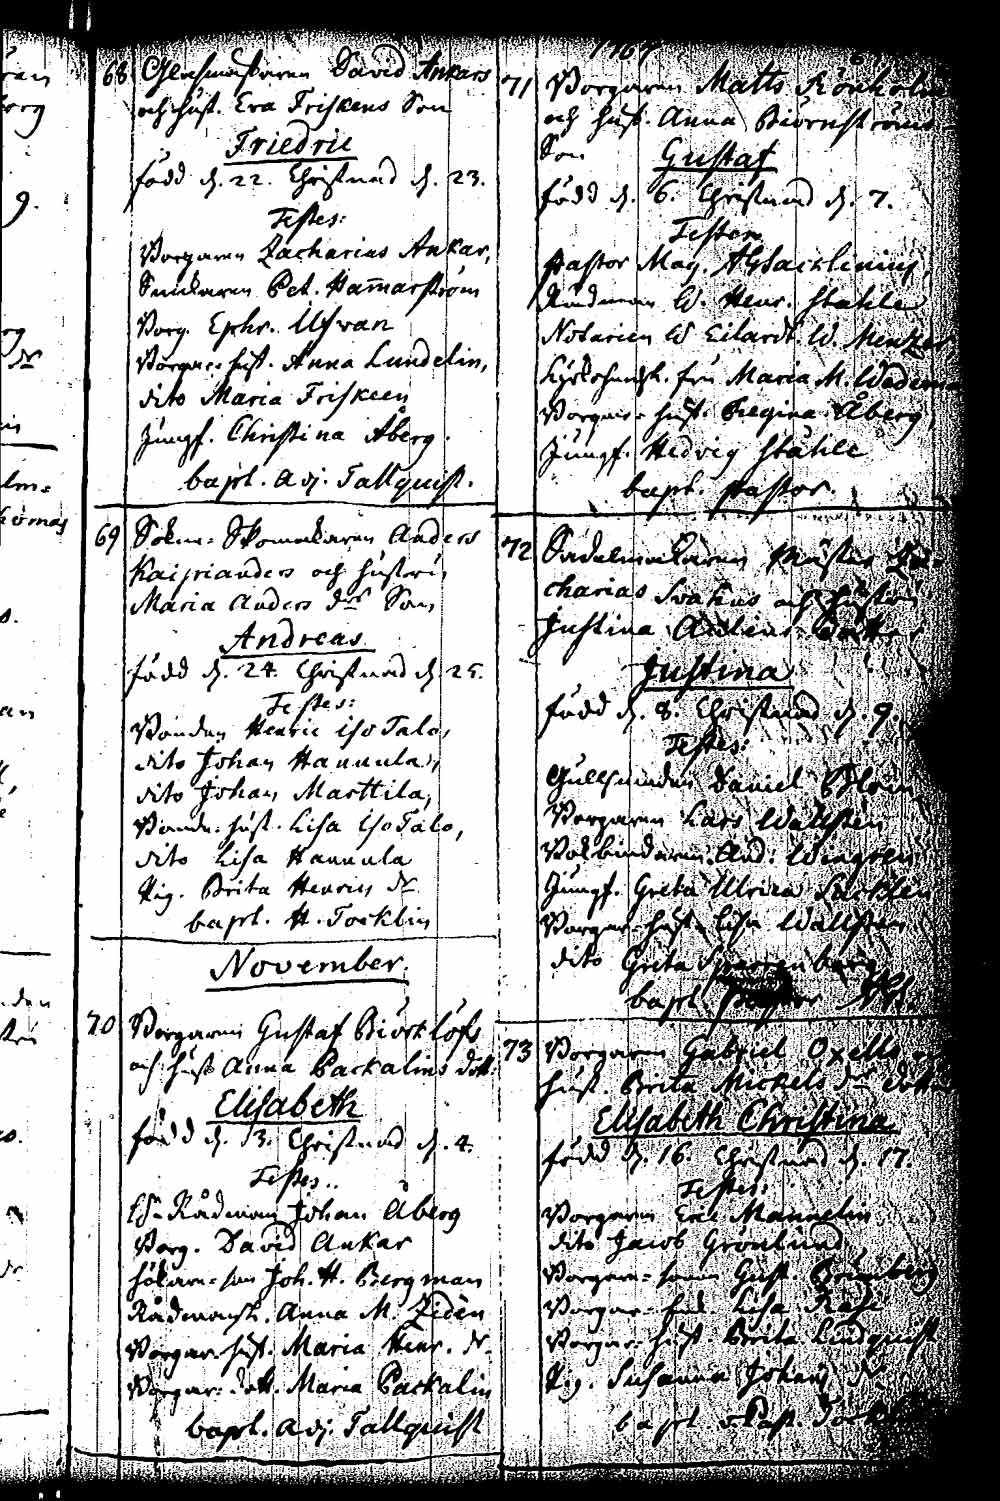 68 Glasmästaren David Ankars
och hust. Eva Friskens Son
Friedric
född d. 22. Christnad d. 23.
Testes:
Borgaren Zacharias Ankar,
Smickaren Pet. Ham̄arström
Borg. Ephr.
Borgar-hust. Anna Lundelin,
dito Maria Frisken
Jungf. Christina Åberg.
bapt. Adj. Tallquist.
69 Sokne-Skomakaren Anders
Kaiprianders och hustrun
Maria Anders dr Son
Andreas
född d. 24. Christnad d. 25.
Testes:
Bonden Henric Iso Talo,
dito Johan Hannula,
dito Johan Marttila,
Bonde-hust. Lisa Iso Talo,
dito Lisa Hannula
Pig. Brita Henrics dr
bapt. H. Tocklin
November.
70 Borgaren Gustaf Biörklöfs
och hust Anna Packalins dott.
Elisabeth
född d. 3. Christnad d. 4.
Testes.
Rådman Johan Åberg
Borg. David Ankar
Joh. H. Bergman
Rådmansk. Anna M. Zidén
Borgar-hust. Maria Henr. dr
Borgar-dott. Maria Packalin
bapt. Adj. Tallquist
1767
71 Borgaren Matts Rönholm
och hust. Anna Biörnströms
Son Gustaf
född d. 6. Christnad d. 7.
Testes
Pastor Mag.
Rådman W. Henr. Ståhle
Notarien W Eilardt. W. Mentzer
fru Maria M. Wadenia
Borgar-hust. Regina Åberg,
Jungf. Hedvig Ståhle
bapt. Pastor.
72 Sadelmakaren Mäster Za-
charias Svahns och hustru
Justina Dotter
Justina
född d. 8. Christnad d. 9.
Testes:
Gullsmeden Daniel Blom,
Borgaren Lars Wallsten
Bokbindaren And. Wingren
Jungf. Greta Ulrica
Borgar-hust. Lisa Wallsten
dito Greta
bapt. Pastor
73 Borgaren Gabriel Oxells
hust. Brita Mickels dr dotter
Elisabeth Christina
född d. 16. Christnad d. 17.
Testes:
Borgaren Eric Mannelin
dito Jacob Grönlund
Borgare-sonen Gust. Grönberg
Borgar- Lisa
Borgar-hust. Brita Lindquist
Pig. Susanna Johans dr
bapt. Past. Tocklin